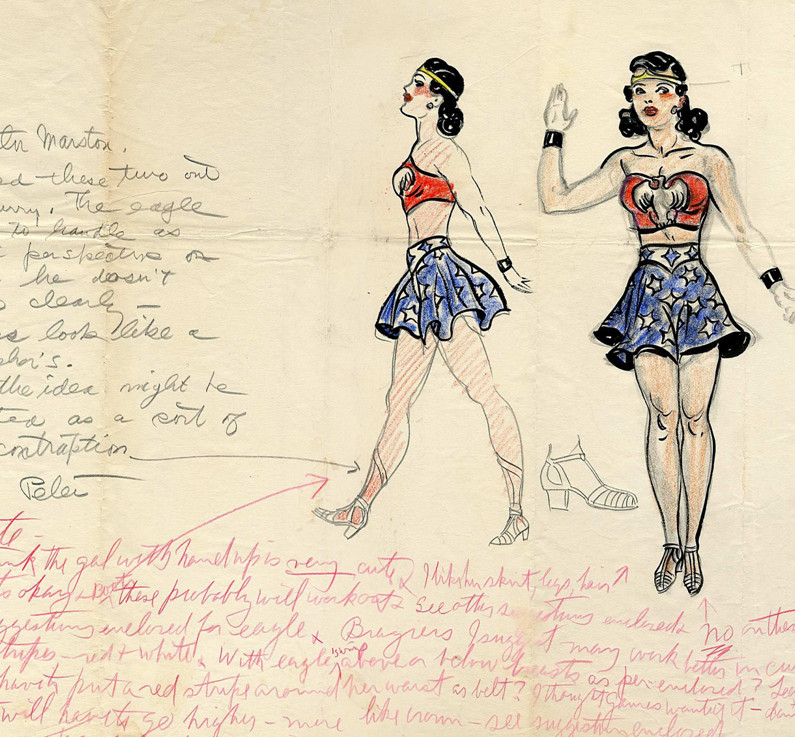 tor Marston,
ed these two out
urry. The eagle
to handle as
perspective or
he doesn't
clearly —
s look like a
pher's.
the idea might be
ted as a sort of
contraption
Peter
te —
nk the gal with hand up is very cute & I like her skirt, legs, hair
's okay & Boots these probably will work out & See other suggestions enclosed & No on these
ggestions enclosed for eagle & I suggest may work better in
tripes — red & white & With eagle's wings above or below breasts as per enclosed?
have to put a red stripe around her waist as belt? I thought Gaines wanted it — don't
will have to go higher — more like crown — see suggestion enclosed